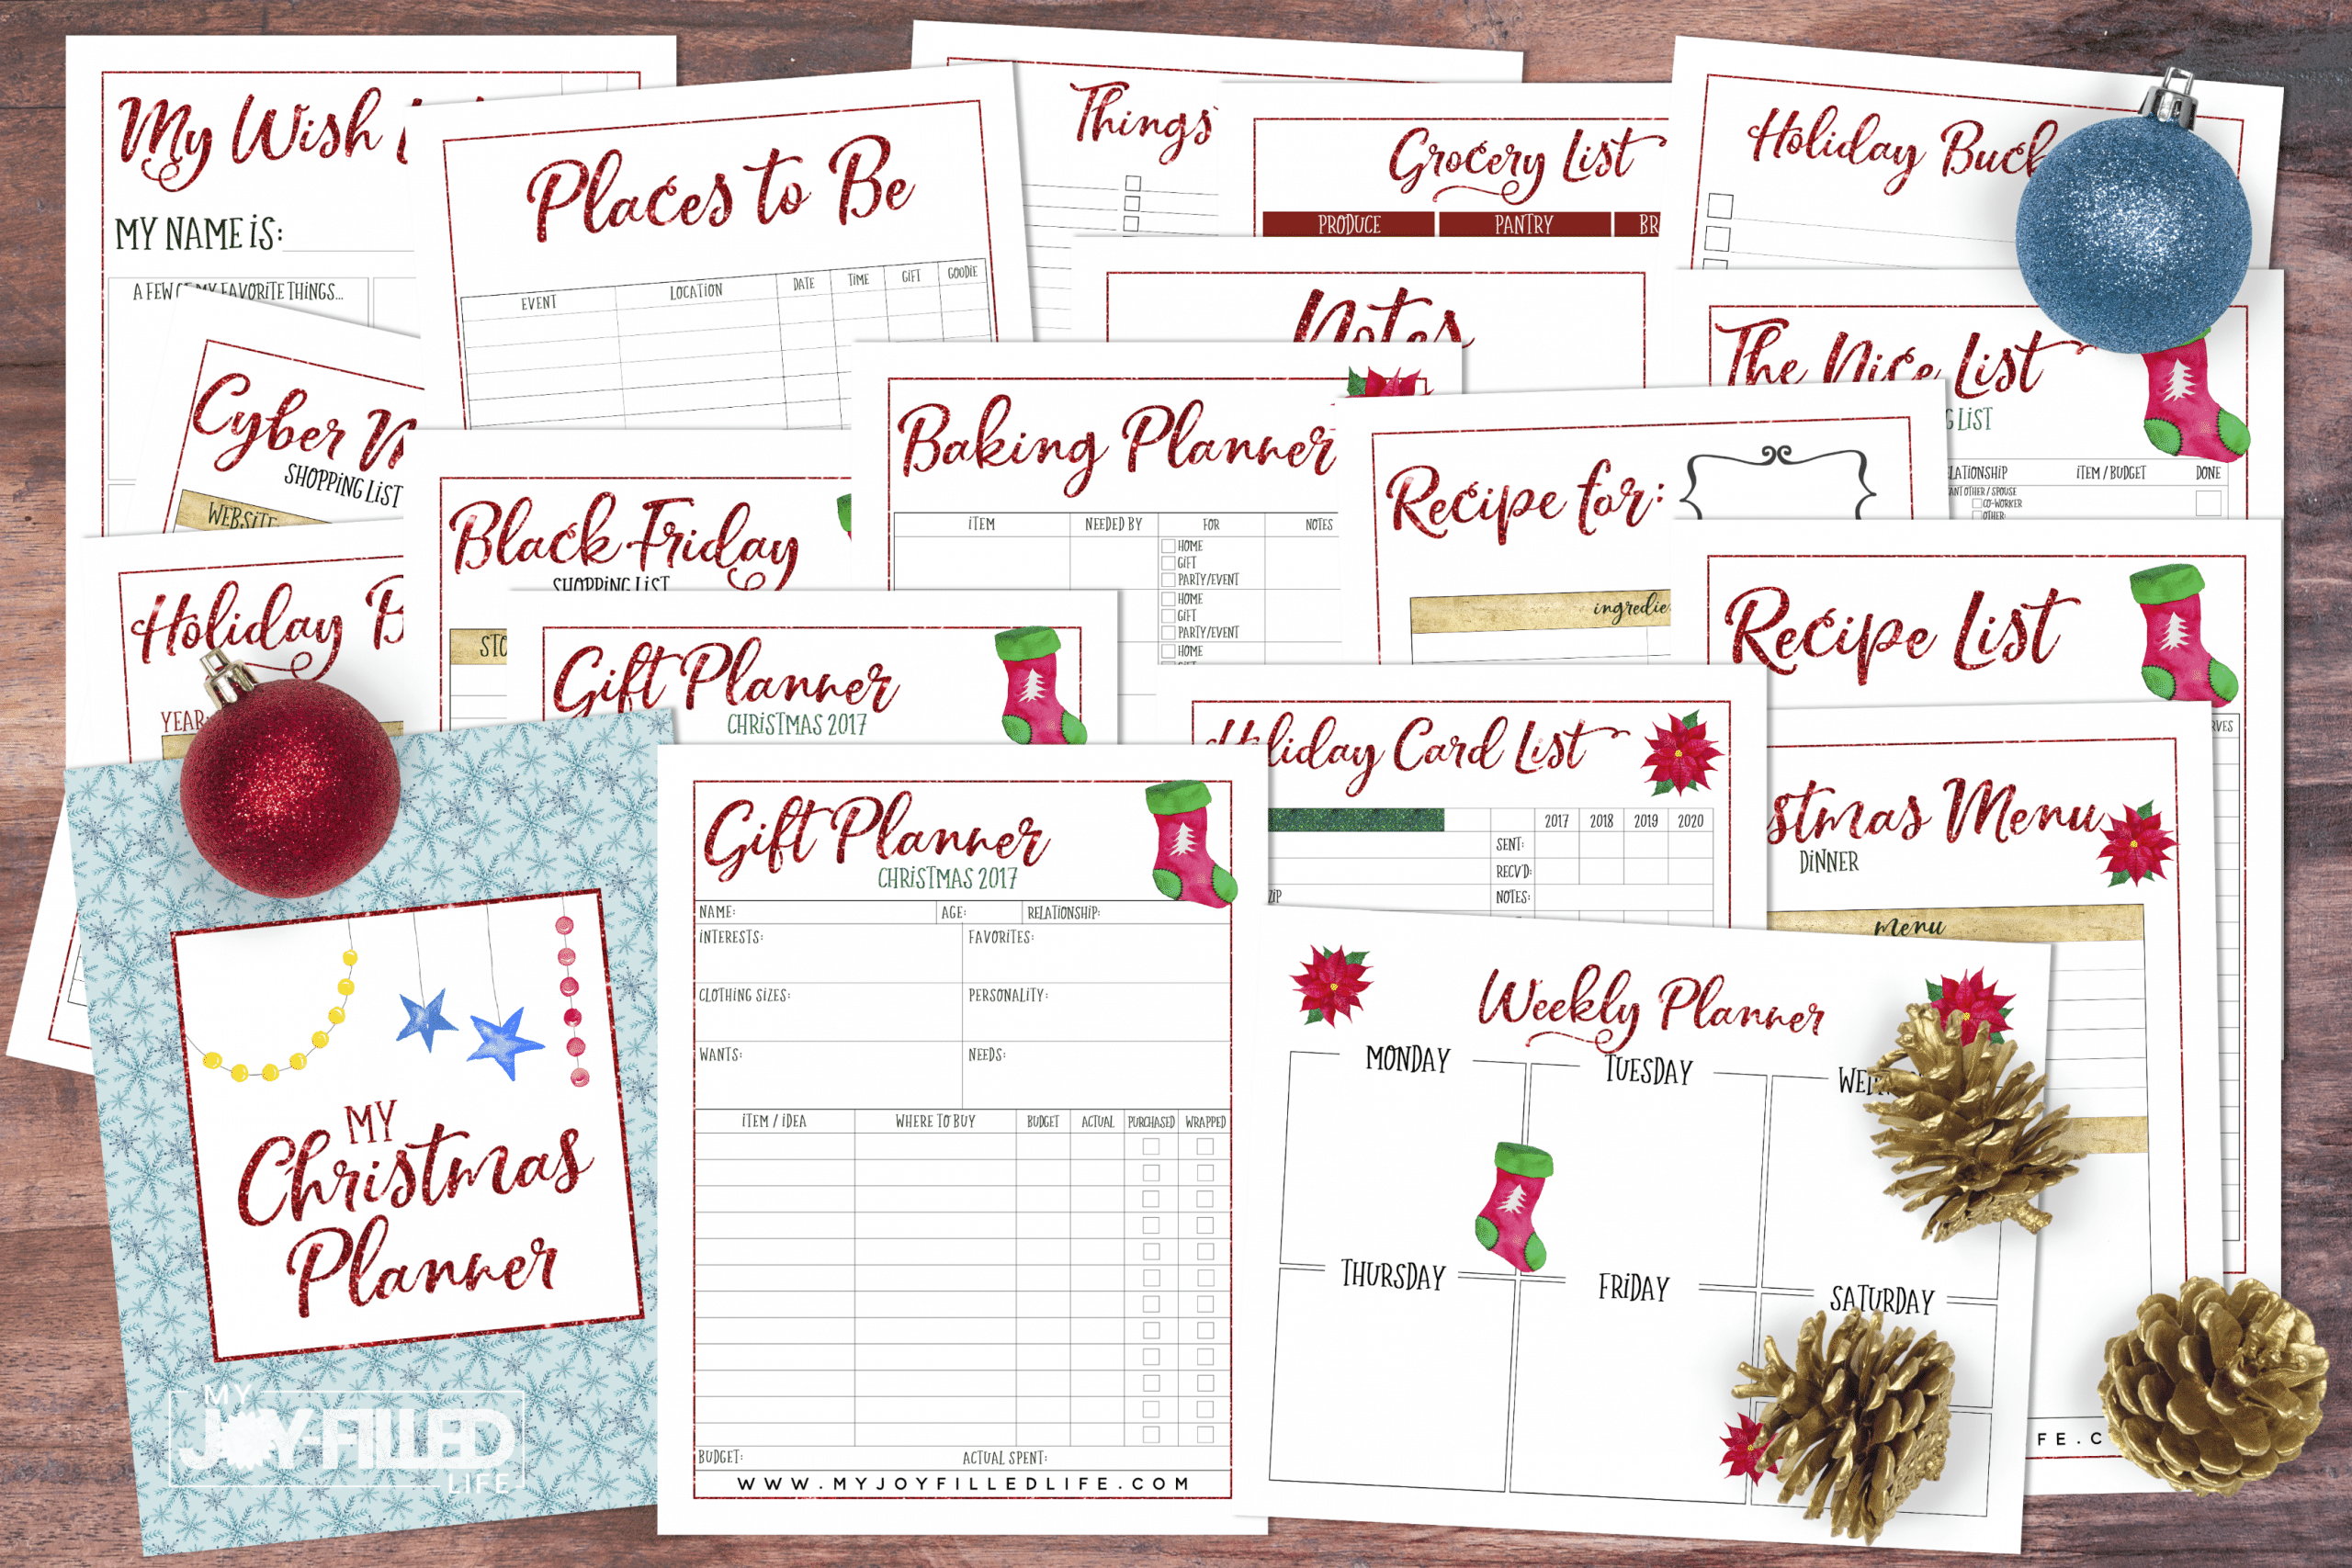 My Wish
MY NAME iS:
A FEW MY FAVORITE THiNGS...
Places to Be
EVENT LOCATION DATE TIME GIFT GOODIE
Things
Grocery List
PRODUCE PANTRY
Holiday
Notes
The Nice List
LIST
iTEM / BUDGET DONE
CO-WORKER
OTHER:
Cyber
SHOPPiNG LiST
WEBSITE
Black Friday
SHOPPiNG LiST
Baking Planner
iTEM NEEDED BY FOR NOTES
HOME
GiFT
PARTY/EVENT
HOME
GiFT
PARTY/EVENT
HOME
Recipe for:
Recipe List
Holiday
YEAR:
Gift Planner
CHRiSTMAS 2017
Holiday Card List
2017 2018 2019 2020
SENT:
RECV'D:
ZIP NOTES:
Menu
DiNNER
menu
MY
Christmas
Planner
MY
JOY-FILLED
LIFE
Gift Planner
CHRiSTMAS 2017
NAME: AGE: RELATiONSHiP:
iNTERESTS: FAVORiTES:
CLOTHiNG SiZES: PERSONALiTY:
WANTS: NEEDS:
iTEM / iDEA WHERE TO BUY BUDGET ACTUAL PURCHASED WRAPPED
BUDGET: ACTUAL SPENT:
WWW.MYJOYFILLEDLIFE.COM
Weekly Planner
MONDAY TUESDAY
THURSDAY FRiDAY SATURDAY